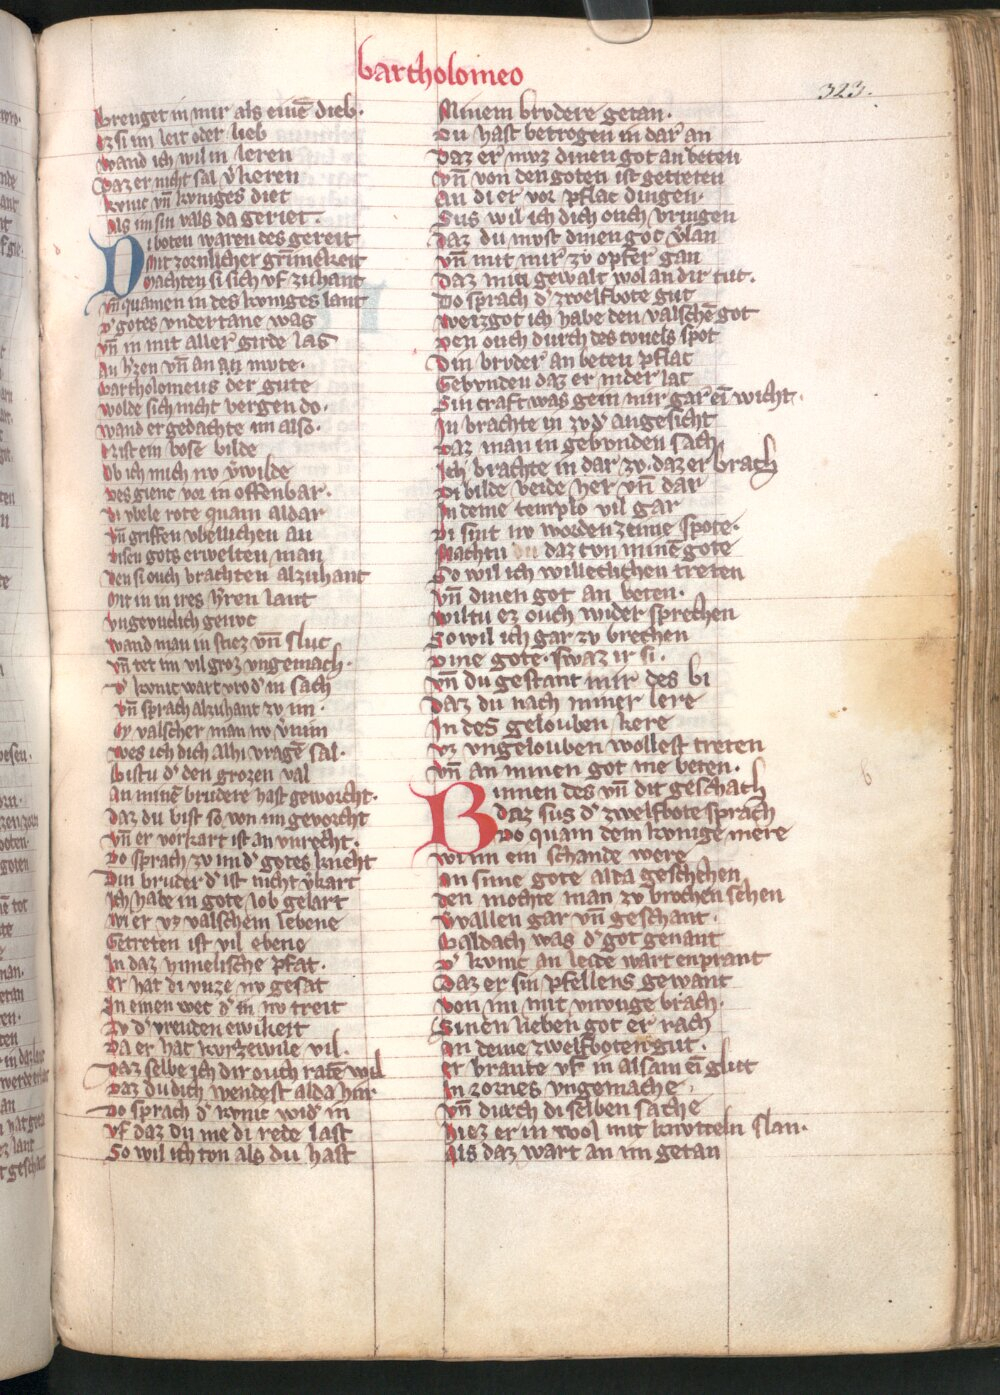 bartholomeo
323.
Brenget in mir als einē dieb.
Ez si im leit oder lieb
Wand ich wil in leren
Daz er nicht sal v̾keren
Kvnic vn̄ kvniges diet
Als im sin vals da geriet.
Di boten waren des gereit
Mit zornlicher grimekeit
Machten si sich vf zuhant
Vn̄ quamen in des kvniges lant
D̾ gotes vndertane was
Vn̄ in mit aller girde las
An h̾zen vn̄ an an mvte.
Bartholomeus der gute
Wolde sich nicht bergen do.
Wand er gedachte im also.
Ez ist ein bose bilde
Ob ich mich nv v̾wilde
Des gienc vor in offenbar.
Di vbele rote quam aldar
Vn̄ griffen vbellichen an
Disen gots erwelten man
Den si ouch brachten alzuhant
Mit in in ires h̾ren lant
Vngevuclich genvc
Wand man in stiez vn̄ sluc
Vn̄ tet im vil groz vngemach.
D̾ kvnic wart vro d̾ in sach
Vn̄ sprach alzuhant zv im.
Ey valscher man nv v̾nim
Wes ich dich alhi vragē sal.
Bistu d̾ den grozen val
An minē brudere hast geworcht.
Daz du bist so von im gevorcht
Vn̄ er vorkart ist an vnrecht.
Do sprach zv im d̾ gotes knecht
Din bruder d̾ ist nicht v̾kart
Ich habe in gote lob gelart
Wi er vz valschem lebene
Getreten ist vil ebene
In daz himelische pfat.
Er hat di vuze nv gesat
In einen wec d̾ in nv treit
Zv d̾ vreuden ewikeit
Da er hat kvrzewile vil.
Daz selbe ich dir ouch ratē wil
Daz du dich wendest alda hin
Do sprach d̾ kvnic wid̾ in
Vf daz du me di rede last
So wil ich ton als du hast
Minem brvdere getan.
Du hast betrogen in dar an
Daz er mvz dinen got an beten
Vn̄ von den goten ist getreten
An di er vor pflac dingen.
Sus wil ich dich ouch vringen
Daz du mvst dinen got v̾lan
Vn̄ mit mir zv opfer gan
Daz mici gewalt wol an dir tut.
Do sprach d̾ zwelfbote gut
Weizgot ich habe den valschē got
Den ouch durch des touels spot
Din brvder an beten pflac
Gebvnden daz er nider lac
Sin craft was gein mir gar ēi wicht.
Ju brachte in zv d̾ angesicht
Daz man in gebvnden sach
Ich brachte in dar zv. daz er brach
Di bilde beide her vn̄ dar
In deme templo vil gar
Di sint nv worden zeime spote.
Machtu du daz ton minē gote
So wil ich willeclichen treten
Vn̄ dinen got an beten.
Wiltu ez ouch wider sprechen
So wil ich gar zv brechen
Dine gote. swaz ir si.
Vn̄ du gestant mir des bi
Daz du nach miner lere
In des gelouben kere
Vz vngelouben wollest treten
Vn̄ an minen got me beten.
Binnen des vn̄ dit geschach
Daz sus d̾ zwelfbote sprach
Do quam dem kvnige mere
Wi im ein schande were
An sime gote alda geschehen
Den mochte man zv brochen sehen
Gvallen gar vn̄ geschant.
Baldach was d̾ got genant
D̾ kvnic an leide wart enprant
Daz er sin pfellens gewant
Von im mit vnvuge brach.
Sinen lieben got er rach
An deme zwelfboten gut.
Er brante vf in alsam ēi glut
In zornes vngemache,
Vn̄ durch di selben sache
Hiez er in wol mit knvtteln slan.
Als daz wart an im getan